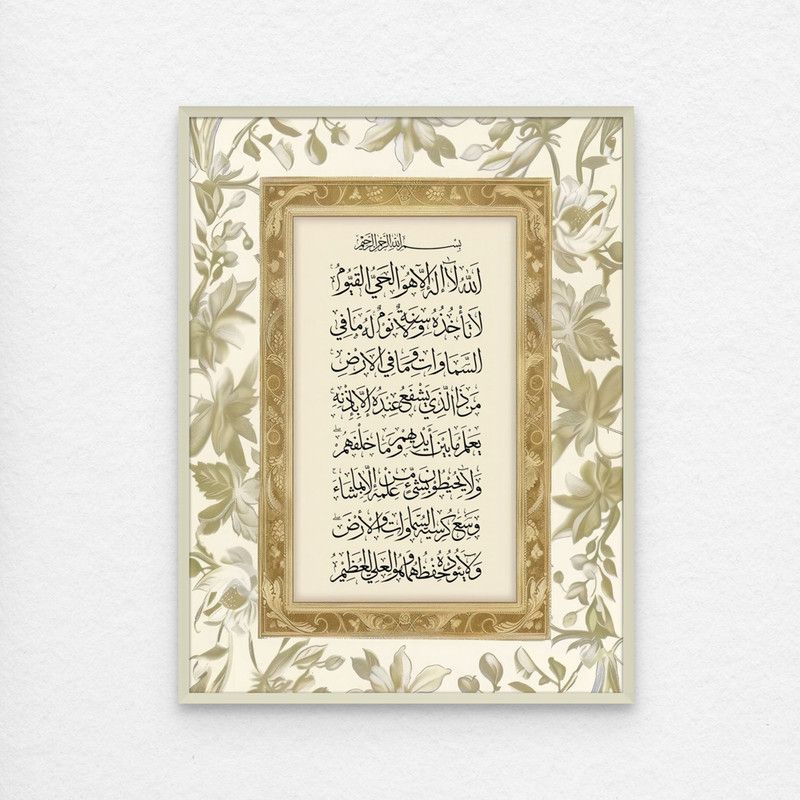 بسم الله الرحمن الرحيم
الله لا إله إلا هو الحي القيوم
لا تأخذه سنة ولا نوم له ما في
السماوات وما في الأرض
من ذا الذي يشفع عنده إلا بإذنه
يعلم ما بين أيديهم وما خلفهم
ولا يحيطون بشيء من علمه إلا بما شاء
وسع كرسيه السماوات والأرض
ولا يئوده حفظهما وهو العلي العظيم